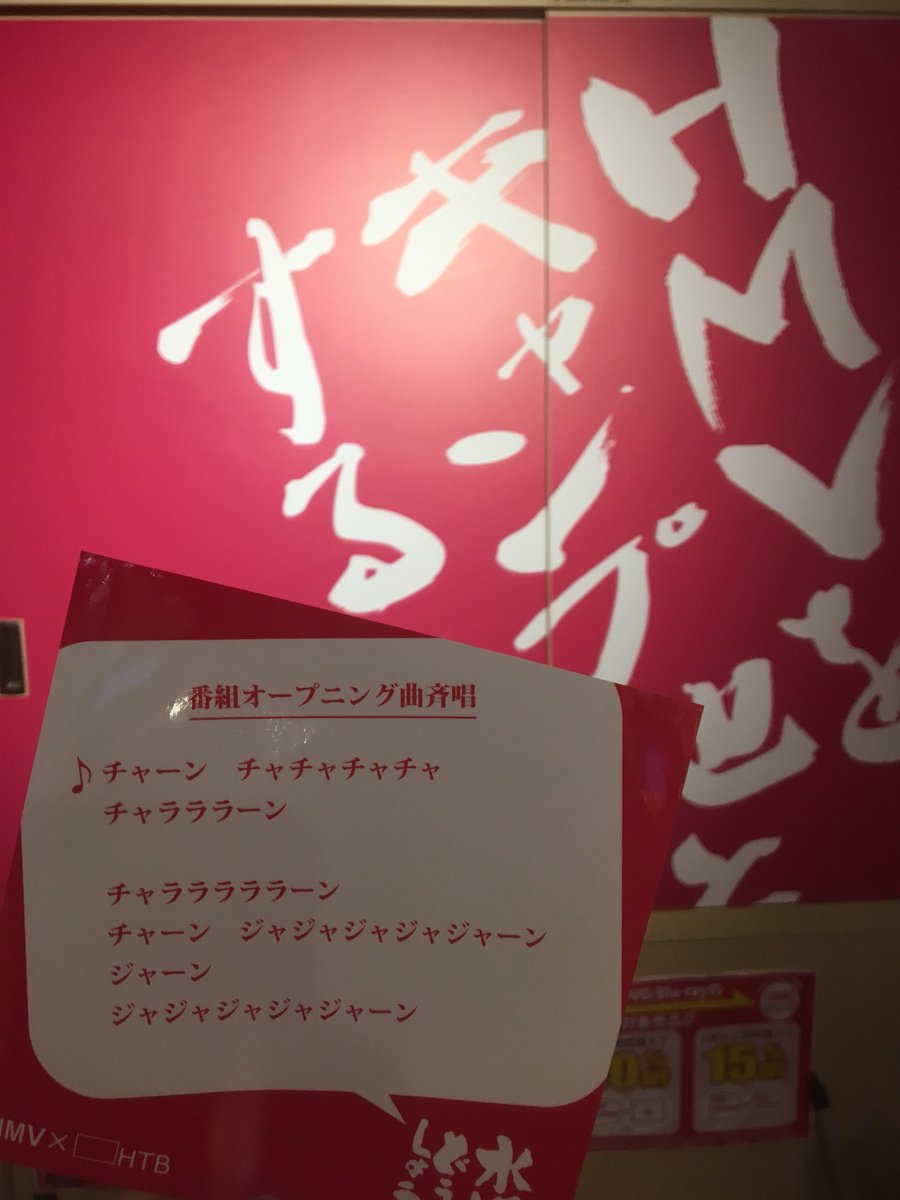 HMVを
キャンプ
する
番組オープニング曲斉唱
♪チャーン　チャチャチャチャ
チャラララーン
チャラララララーン
チャーン　ジャジャジャジャジャーン
ジャーン
ジャジャジャジャジャーン
HMV×□HTB
水
どう
しょう
15